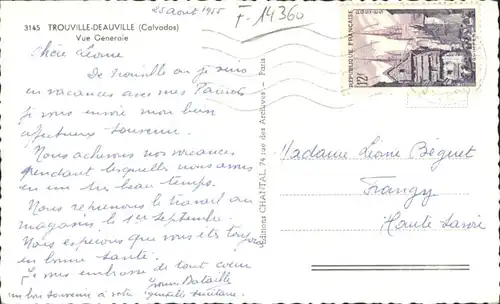 25 Aout 1955
F-14360
3145 TROUVILLE-DEAUVILLE (Calvados)
Vue Générale
Chère Léone
De Trouville où je suis
en vacances avec mes Parents
je vous envoie mon bien
affectueux souvenir.
Nous achevons nos vacances
pendant lesquelles nous avons
eu un très beau temps.
Nous reprenons le travail au
magasin le 1er septembre.
Nous espérons que vous êtes toujours
en bonne santé.
Je vous embrasse de tout cœur
Bataille
un bon souvenir à votre
Editions CHANTAL, 74 rue des Archives - Paris
REPUBLIQUE FRANÇAISE
POSTES
12F
Madame Léone Béguet
Frangy
Haute Savoie